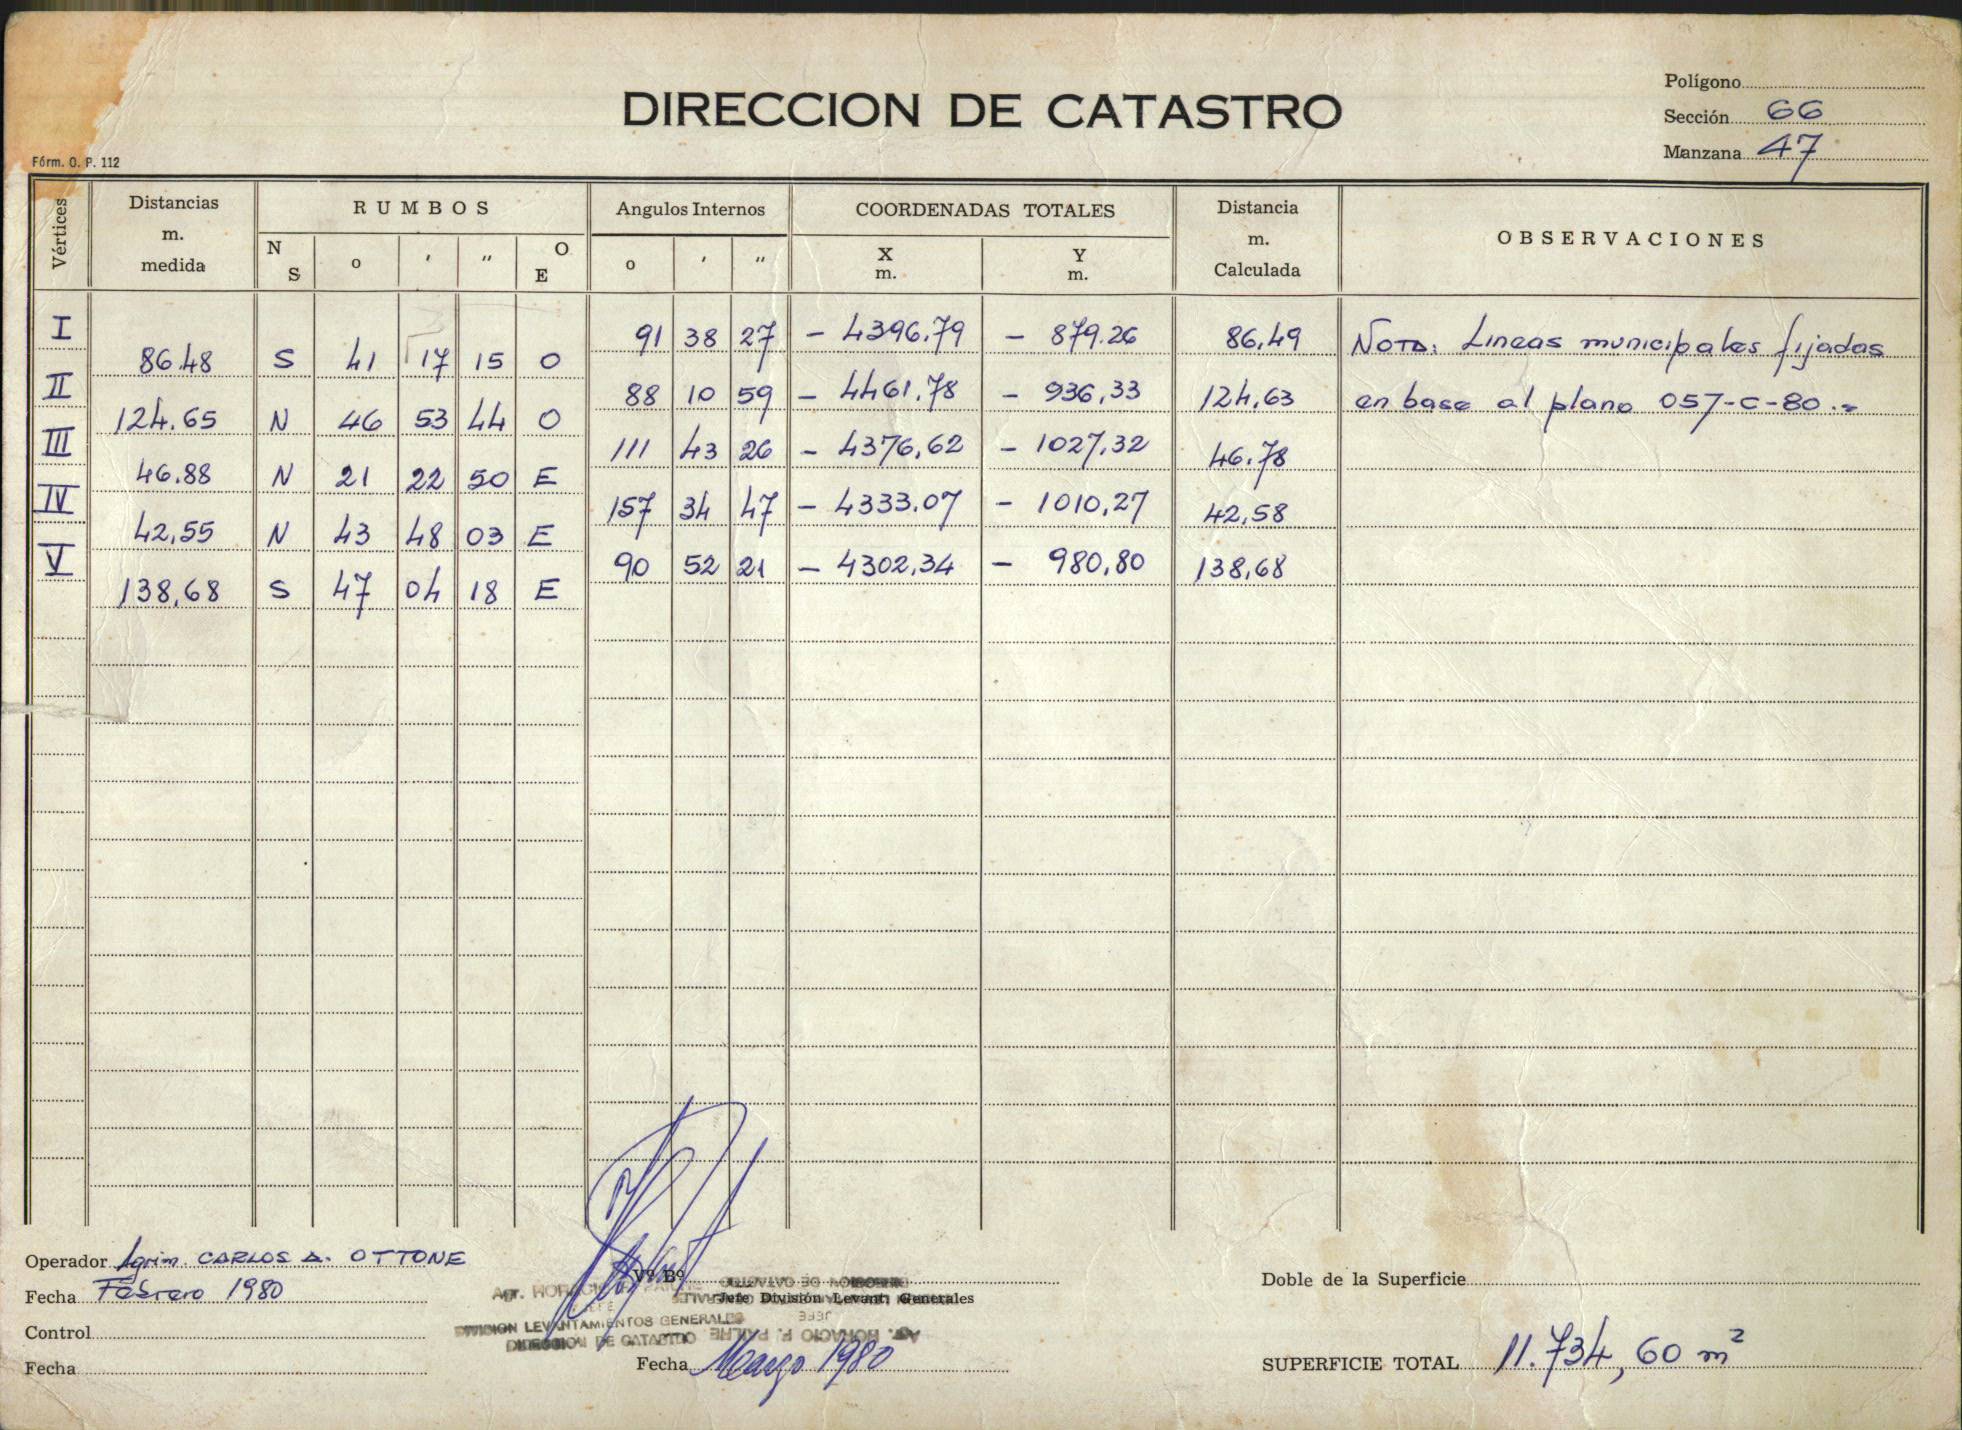 Polígono
DIRECCION DE CATASTRO
Sección 66
Manzana 47
Fórm. O. P. 112
Vértices
Distancias m. medida
RUMBOS
Angulos Internos
COORDENADAS TOTALES
Distancia m. Calculada
OBSERVACIONES
N S o ' " O E
o ' "
X m. Y m.
I 91 38 27 - 4396.79 - 879.26 86,49 NOTA: Lineas municipales fijadas
86.48 S 41 17 15 O
II 88 10 59 - 4461,78 - 936,33 124,63 en base al plano 057-C-80.-
124.65 N 46 53 44 O
III 111 43 26 - 4376,62 - 1027,32 46.78
46.88 N 21 22 50 E
IV 157 34 47 - 4333.07 - 1010,27 42,58
42,55 N 43 48 03 E
V 90 52 21 - 4302,34 - 980,80 138,68
138,68 S 47 04 18 E
Operador Agrim. CARLOS A. OTTONE
Fecha Febrero 1980
Control
Fecha
Vº Bº
Jefe División Levant. Generales
JEFE
DIVISION LEVANTAMIENTOS GENERALES
DIRECCION DE CATASTRO
Fecha Marzo 1980
Doble de la Superficie
SUPERFICIE TOTAL 11.734,60 m²